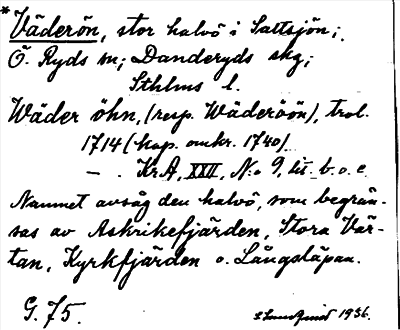 * Väderön, stor halvö i Saltsjön;
Ö. Ryds sn; Danderyds skg;
Sthlms l.
Wäder öhn, (resp. Wäderöön), trol.
1714 (kop. omkr. 1740).
— . Kr.A, XXII, N:o 9, lit. b. o. c.
Namnet avsåg den halvö, som begrän-
sas av Askrikefjärden, Stora Vär-
tan, Kyrkfjärden o. Långsläpan.
G. 75.
1936.